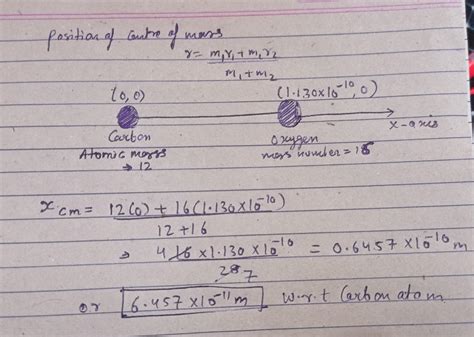 Position of Centre of mass
r = m₁r₁ + m₂r₂
m₁ + m₂
(0,0) (1.130×10⁻¹⁰, 0)
x-axis
Carbon Oxygen
Atomic mass mass number = 16
→ 12
x cm = 12(0) + 16(1.130×10⁻¹⁰)
12 + 16
⇒ 4 16 × 1.130 × 10⁻¹⁰ = 0.6457 × 10⁻¹⁰ m
28 7
or 6.457 × 10⁻¹¹ m w.r.t Carbon atom